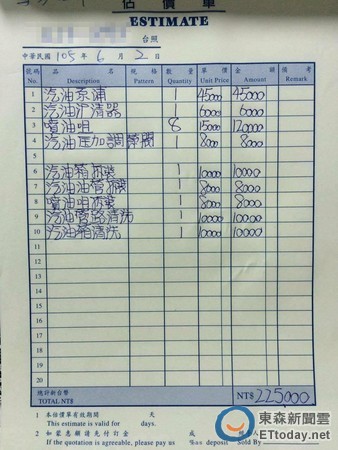 估價單
ESTIMATE
台照
中華民國 105 年 6 月 2 日
號碼 品名 規格 數量 單價 金額 備考
No. Description Pattern Quantity Unit Price Amount Remark
1 汽油泵浦 1 45000 45000
2 汽油沪清器 1 6000 6000
3 噴油咀 8 15000 120000
4 汽油 加調節閥 1 8000 8000
5
6 汽油箱拆裝 1 10000 10000
7 汽油油管拆裝 1 8000 8000
8 噴油咀拆裝 1 8000 8000
9 汽油管路清洗 1 10000 10000
10 汽油箱清洗 1 10000 10000
11
12
13
14
15
16
17
18
19
20
總計新台幣
TOTAL NT$ NT$ 225000
1 本估價單有效期間 天
This estimate is valid for days.
2 如蒙惠顧請先付訂金
If the quotation is agreeable, please pay us % deposit Sold By
東森新聞雲
ETtoday.net